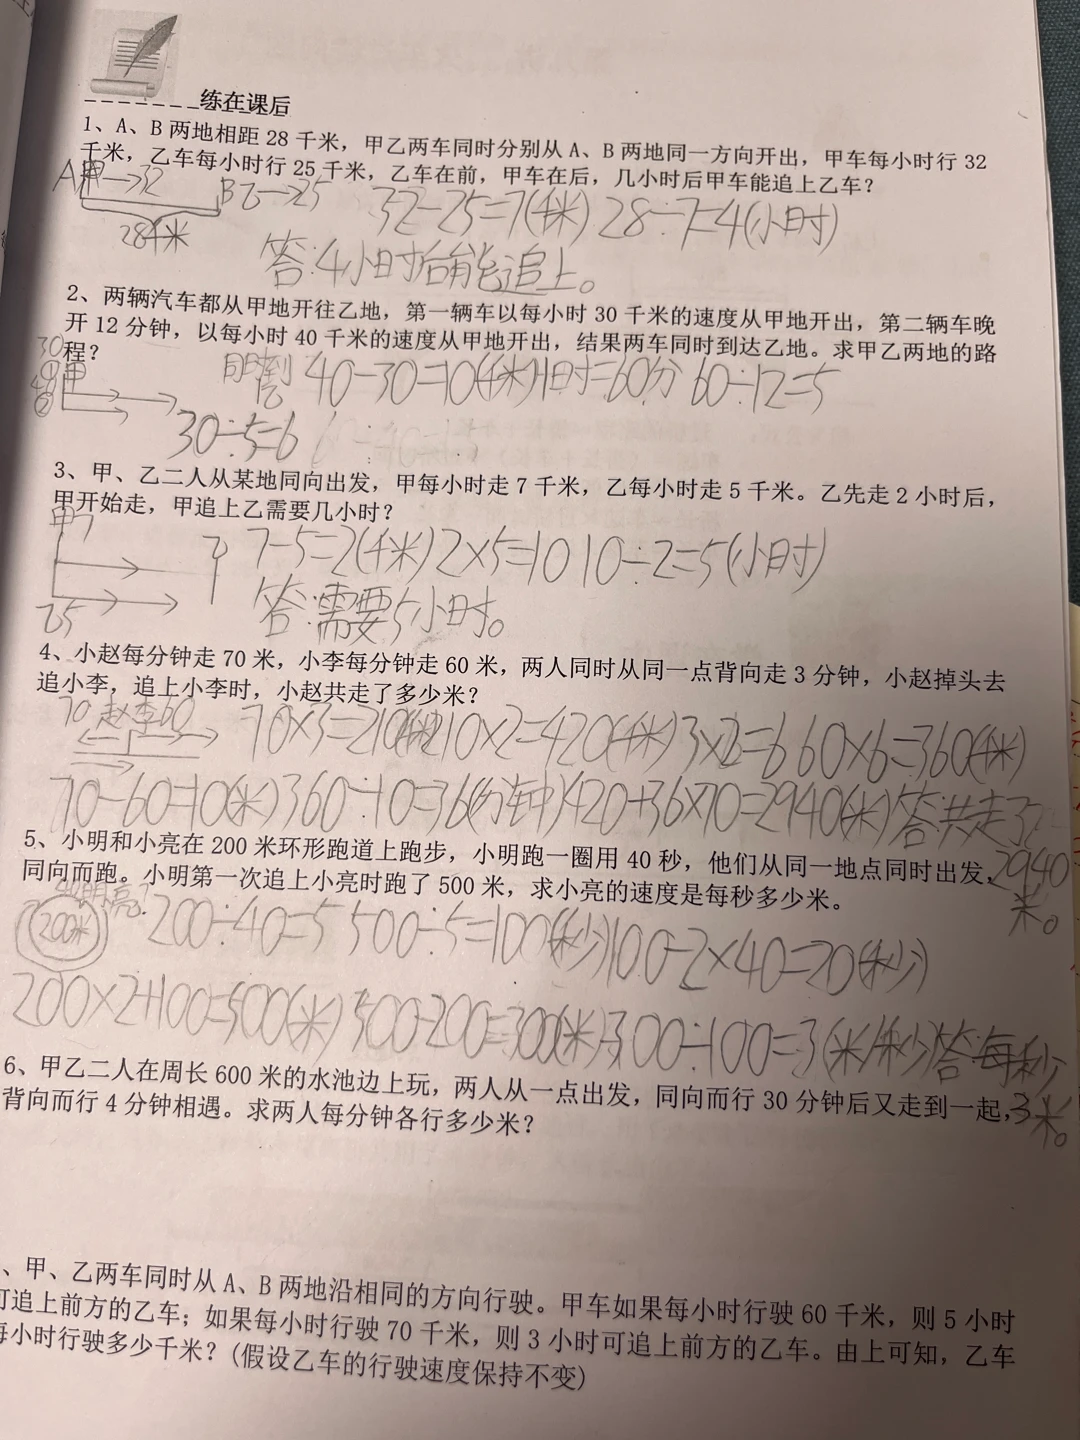 练在课后
1、A、B两地相距28千米，甲乙两车同时分别从A、B两地同一方向开出，甲车每小时行32
千米，乙车每小时行25千米，乙车在前，甲车在后，几小时后甲车能追上乙车？
A甲→32 B乙→25 32-25=7(千米) 28÷7=4(小时)
28千米
答:4小时后能追上。
2、两辆汽车都从甲地开往乙地，第一辆车以每小时30千米的速度从甲地开出，第二辆车晚
开12分钟，以每小时40千米的速度从甲地开出，结果两车同时到达乙地。求甲乙两地的路
程？
30
①甲
40
②
40-30=10(千米)1时=60分 60÷12=5
30÷5=6
3、甲、乙二人从某地同向出发，甲每小时走7千米，乙每小时走5千米。乙先走2小时后，
甲开始走，甲追上乙需要几小时？
甲7
7-5=2(千米)2×5=10 10÷2=5(小时)
乙5
答:需要5小时。
4、小赵每分钟走70米，小李每分钟走60米，两人同时从同一点背向走3分钟，小赵掉头去
追小李，追上小李时，小赵共走了多少米？
70 赵李60 70×3=210(米)210×2=420(米)3×2=6 60×6=360(米)
70-60=10(米)360÷10=36(分钟)420+36×70=2940(米)答:共走了
2940
米。
5、小明和小亮在200米环形跑道上跑步，小明跑一圈用40秒，他们从同一地点同时出发，
同向而跑。小明第一次追上小亮时跑了500米，求小亮的速度是每秒多少米。
40明亮?
200米
200÷40=5 500÷5=100(秒)100-2×40=20(秒)
200×2+100=500(米)500-200=300(米)300÷100=3(米/秒)答:每秒
3米。
6、甲乙二人在周长600米的水池边上玩，两人从一点出发，同向而行30分钟后又走到一起，
背向而行4分钟相遇。求两人每分钟各行多少米？
、甲、乙两车同时从A、B两地沿相同的方向行驶。甲车如果每小时行驶60千米，则5小时
可追上前方的乙车；如果每小时行驶70千米，则3小时可追上前方的乙车。由上可知，乙车
每小时行驶多少千米？(假设乙车的行驶速度保持不变)